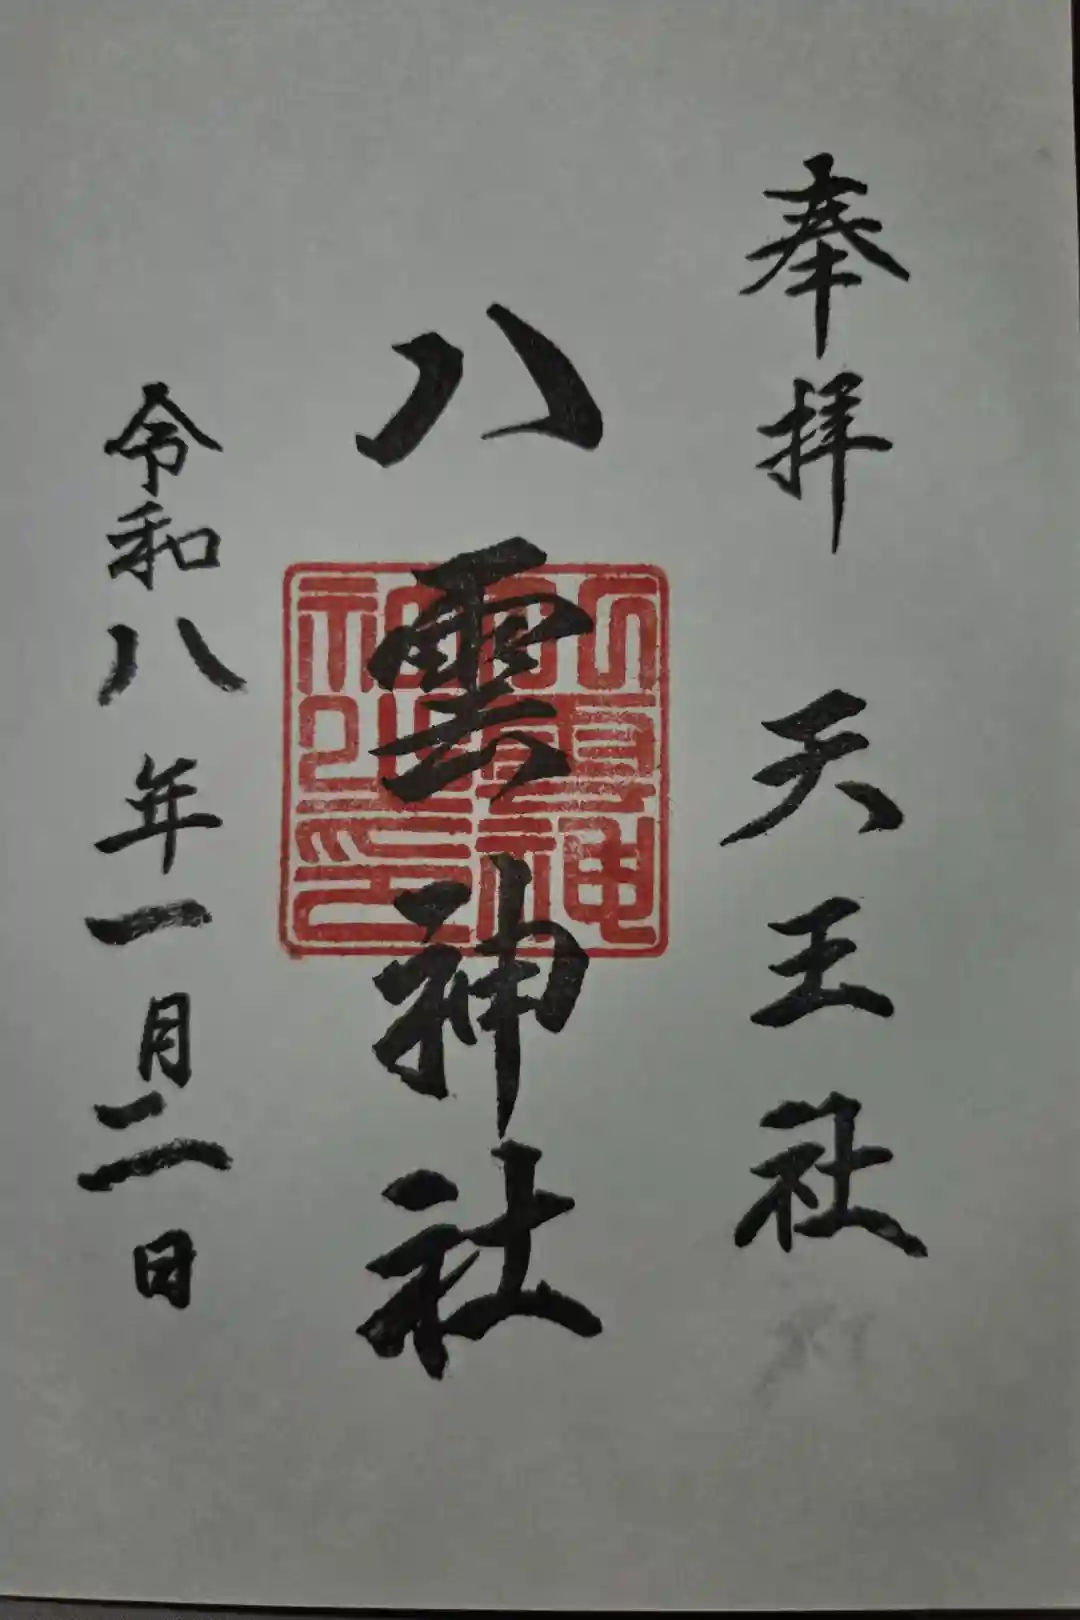 奉拝 天王社
八雲神社
八雲神社之印
令和八年一月二日